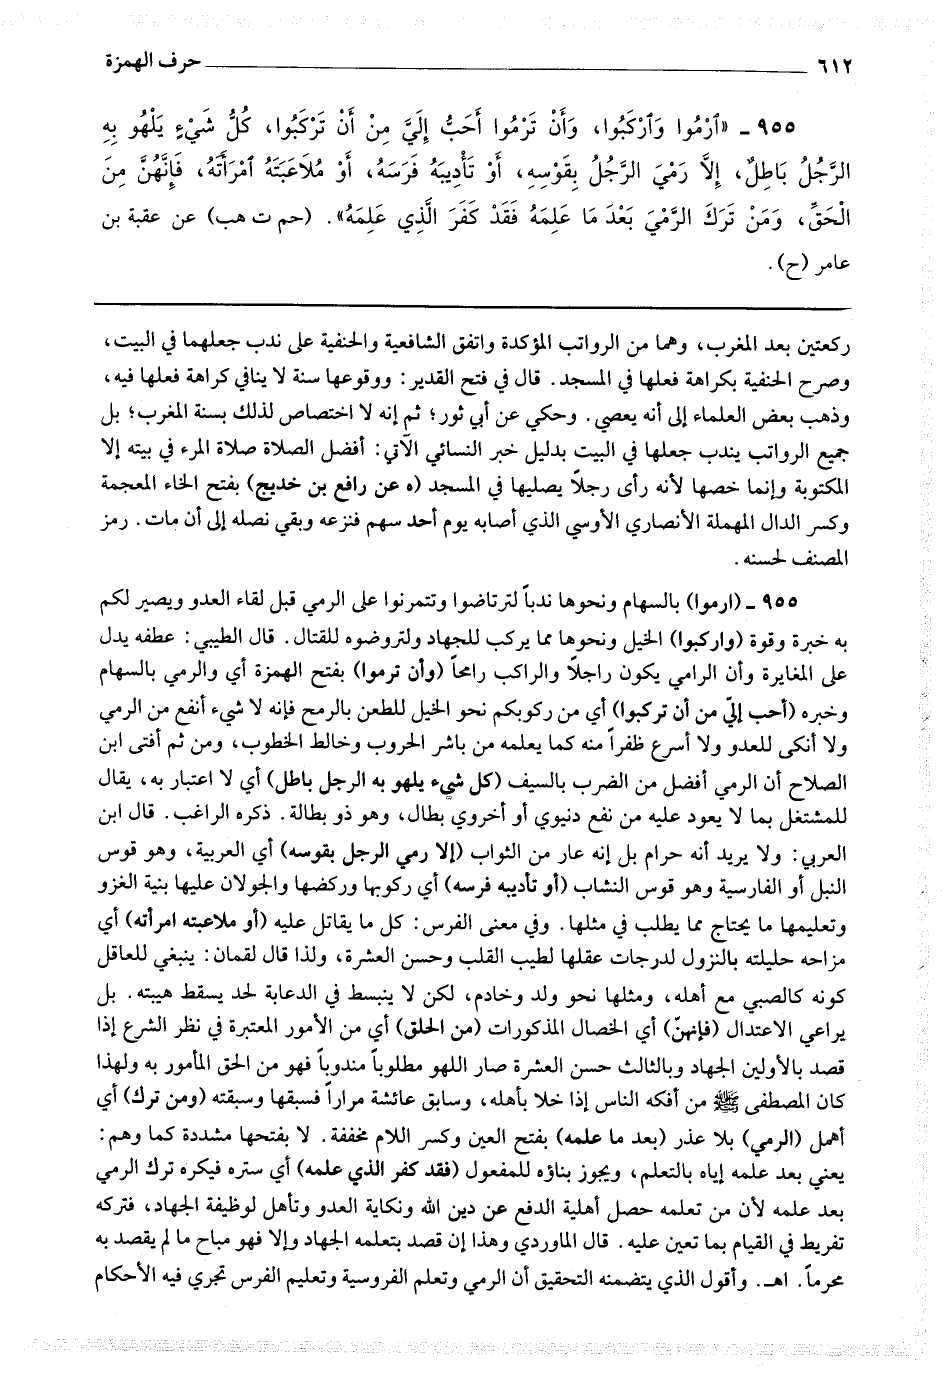 ٦١٢ حرف الهمزة
٩٥٥ ـ «ٱرْمُوا وَٱرْكَبُوا، وَأَنْ تَرْمُوا أَحَبُّ إِلَيَّ مِنْ أَنْ تَرْكَبُوا، كُلُّ شَيْءٍ يَلْهُو بِهِ
الرَّجُلُ بَاطِلٌ، إِلاَّ رَمْيَ الرَّجُلُ بِقَوْسِهِ، أَوْ تَأْدِيبَهُ فَرَسَهُ، أَوْ مُلاَعَبَتَهُ ٱمْرَأَتَهُ، فَإِنَّهُنَّ مِنَ
الْحَقِّ، وَمَنْ تَرَكَ الرَّمْيَ بَعْدَ مَا عَلِمَهُ فَقَدْ كَفَرَ الَّذِي عَلِمَهُ». (حم ت هب) عن عقبة بن
عامر (ح).
ركعتين بعد المغرب، وهما من الرواتب المؤكدة واتفق الشافعية والحنفية على ندب جعلهما في البيت،
وصرح الحنفية بكراهة فعلها في المسجد. قال في فتح القدير: ووقوعها سنة لا ينافي كراهة فعلها فيه،
وذهب بعض العلماء إلى أنه يعصي. وحكي عن أبي ثور؛ ثم إنه لا اختصاص لذلك بسنة المغرب؛ بل
جميع الرواتب يندب جعلها في البيت بدليل خبر النسائي الآتي: أفضل الصلاة صلاة المرء في بيته إلا
المكتوبة وإنما خصها لأنه رأى رجلاً يصليها في المسجد (ه عن رافع بن خديج) بفتح الخاء المعجمة
وكسر الدال المهملة الأنصاري الأوسي الذي أصابه يوم أحد سهم فنزعه وبقي نصله إلى أن مات. رمز
المصنف لحسنه.
٩٥٥ ـ (ارموا) بالسهام ونحوها ندباً لترتاضوا وتتمرنوا على الرمي قبل لقاء العدو ويصير لكم
به خبرة وقوة (واركبوا) الخيل ونحوها مما يركب للجهاد ولتروضوه للقتال. قال الطيبي: عطفه يدل
على المغايرة وأن الرامي يكون راجلاً والراكب رامحاً (وأن ترموا) بفتح الهمزة أي والرمي بالسهام
وخبره (أحب إليّ من أن تركبوا) أي من ركوبكم نحو الخيل للطعن بالرمح فإنه لا شيء أنفع من الرمي
ولا أنكى للعدو ولا أسرع ظفراً منه كما يعلمه من باشر الحروب وخالط الخطوب، ومن ثم أفتى ابن
الصلاح أن الرمي أفضل من الضرب بالسيف (كل شيء يلهو به الرجل باطل) أي لا اعتبار به، يقال
للمشتغل بما لا يعود عليه من نفع دنيوي أو أخروي بطال، وهو ذو بطالة. ذكره الراغب. قال ابن
العربي: ولا يريد أنه حرام بل إنه عار من الثواب (إلا رمي الرجل بقوسه) أي العربية، وهو قوس
النبل أو الفارسية وهو قوس النشاب (أو تأديبه فرسه) أي ركوبها وركضها والجولان عليها بنية الغزو
وتعليمها ما يحتاج مما يطلب في مثلها. وفي معنى الفرس: كل ما يقاتل عليه (أو ملاعبته امرأته) أي
مزاحه حليلته بالنزول لدرجات عقلها لطيب القلب وحسن العشرة، ولذا قال لقمان: ينبغي للعاقل
كونه كالصبي مع أهله، ومثلها نحو ولد وخادم، لكن لا ينبسط في الدعابة لحد يسقط هيبته. بل
يراعي الاعتدال (فإنهنّ) أي الخصال المذكورات (من الحلق) أي من الأمور المعتبرة في نظر الشرع إذا
قصد بالأولين الجهاد وبالثالث حسن العشرة صار اللهو مطلوباً مندوباً فهو من الحق المأمور به ولهذا
كان المصطفى ﷺ من أفكه الناس إذا خلا بأهله، وسابق عائشة مراراً فسبقها وسبقته (ومن ترك) أي
أهمل (الرمي) بلا عذر (بعد ما علمه) بفتح العين وكسر اللام مخففة. لا بفتحها مشددة كما وهم:
يعني بعد علمه إياه بالتعلم، ويجوز بناؤه للمفعول (فقد كفر الذي علمه) أي ستره فيكره ترك الرمي
بعد علمه لأن من تعلمه حصل أهلية الدفع عن دين الله ونكاية العدو وتأهل لوظيفة الجهاد، فتركه
تفريط في القيام بما تعين عليه. قال الماوردي وهذا إن قصد بتعلمه الجهاد وإلا فهو مباح ما لم يقصد به
محرماً. اهـ. وأقول الذي يتضمنه التحقيق أن الرمي وتعلم الفروسية وتعليم الفرس تجري فيه الأحكام